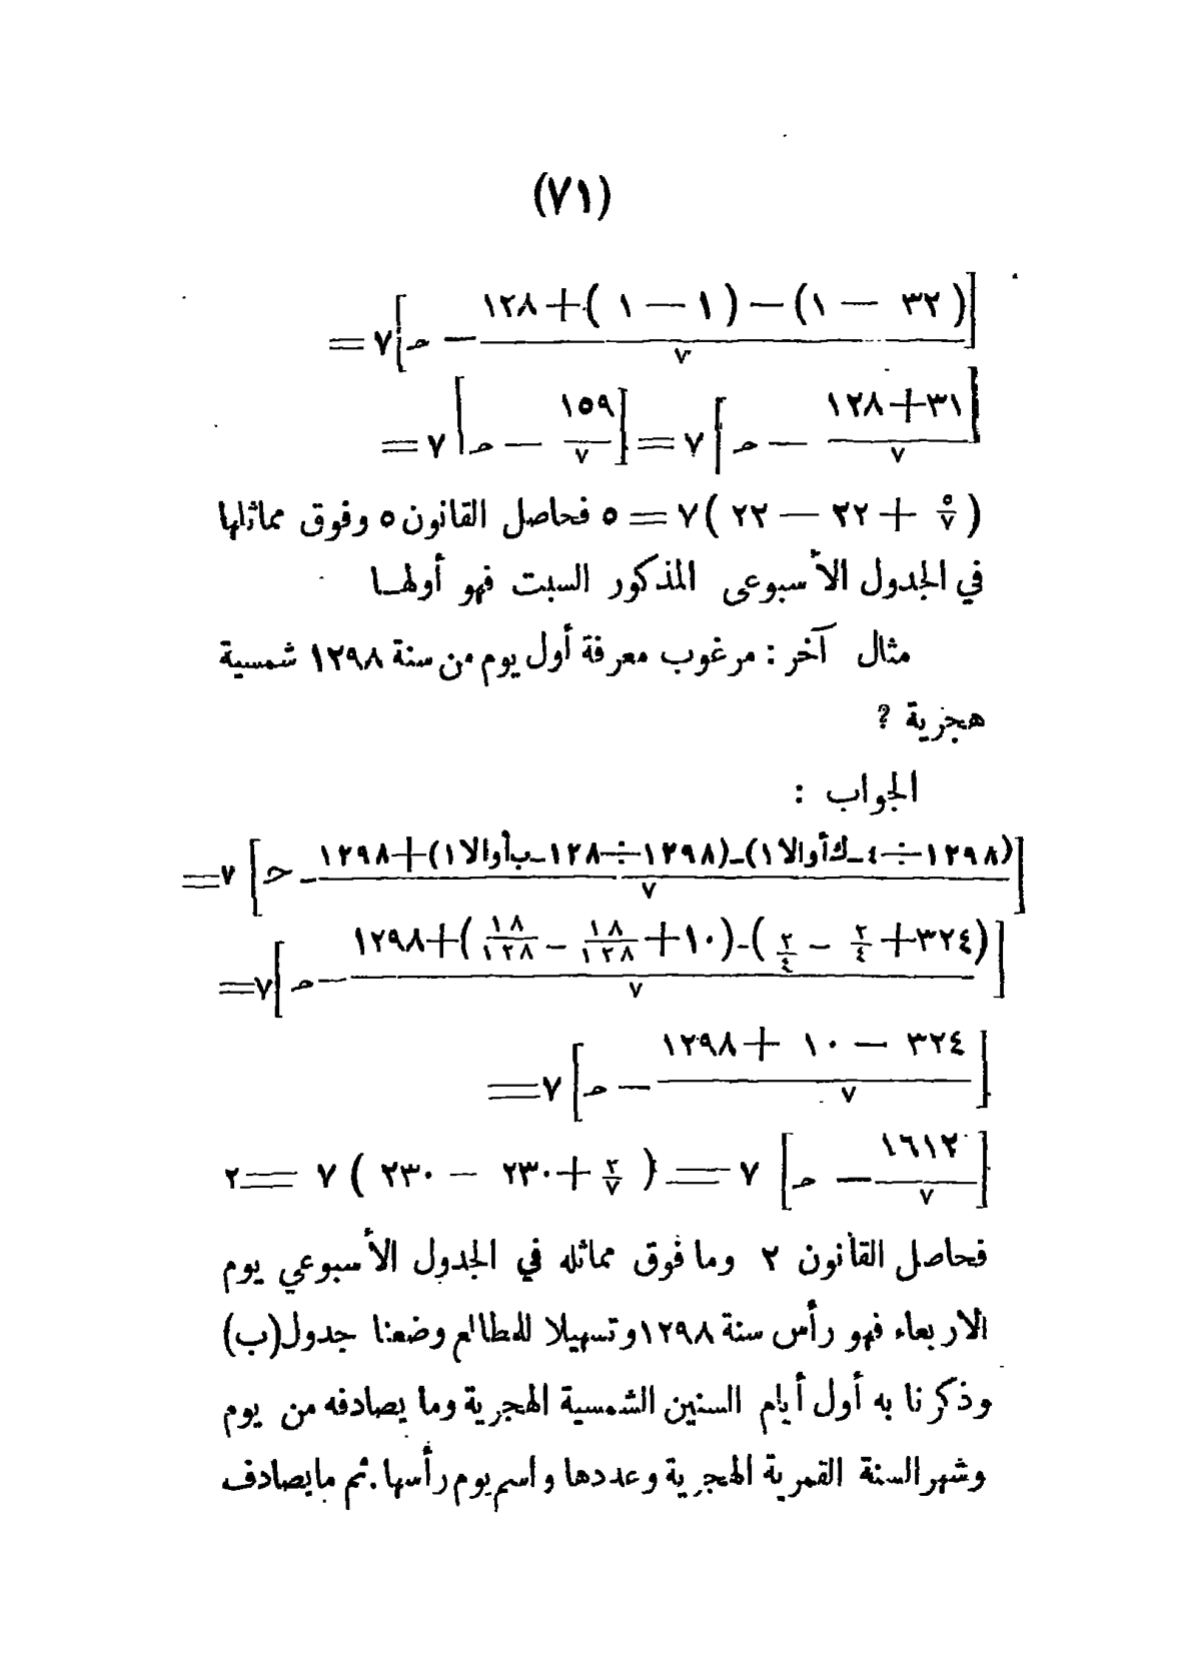 (٧١)
[ (٣٢ — ١) — (١ — ١) + ١٢٨ / ٧ — ح ] ٧ =
[ ٣١ + ١٢٨ / ٧ — ح ] ٧ = [ ١٥٩ / ٧ — ح ] ٧ =
( ٥/٧ + ٢٢ — ٢٢ ) ٧ = ٥ فحاصل القانون ٥ وفوق مماثلها
في الجدول الأسبوعى المذكور السبت فهو أولهـا
مثال آخر : مرغوب معرفة أول يوم من سنة ١٢٩٨ شمسية
هجرية ?
الجواب :
[ (١٢٩٨ ÷ ٤ ـ ك أو الا ١) ـ (١٢٩٨ ÷ ١٢٨ ـ ب أو الا ١) + ١٢٩٨ / ٧ ـ ح ] ٧ =
[ (٣٢٤ + ٢/٤ — ٢/٤) ـ (١٠ + ١٨/١٢٨ — ١٨/١٢٨) + ١٢٩٨ / ٧ — ح ] ٧ =
[ ٣٢٤ — ١٠ + ١٢٩٨ / ٧ — ح ] ٧ =
[ ١٦١٢ / ٧ — ح ] ٧ = ( ٢/٧ + ٢٣٠ — ٢٣٠ ) ٧ = ٢
فحاصل القانون ٢ وما فوق مماثله في الجدول الأسبوعي يوم
الاربعاء فهو رأس سنة ١٢٩٨ وتسهيلا للمطالع وضعنا جدول (ب)
وذكرنا به أول أيام السنين الشمسية الهجرية وما يصادفه من يوم
وشهر السنة القمرية الهجرية وعددها واسم يوم رأسها . ثم ما يصادف